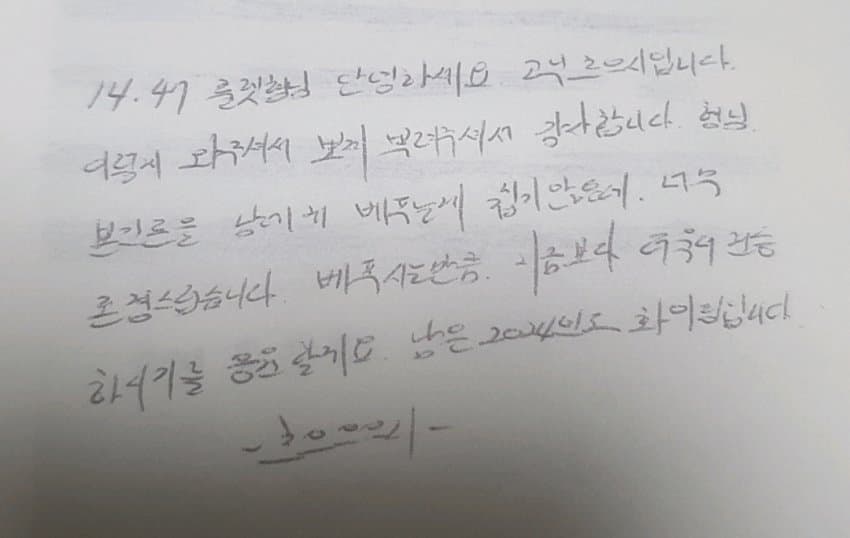 14.47 룰렛형님 안녕하세요 고닉 흐으시입니다.
이렇게 와주셔서 뽀찌 뿌려주셔서 감사합니다. 형님.
본기르을 남에게 베푸는게 쉽지않은데. 너무
존경스럽습니다. 베푸시는만큼. 지금보다 더욱더 관승
하시기를 응원할게요. 남은 2024년도 화이팅입니다